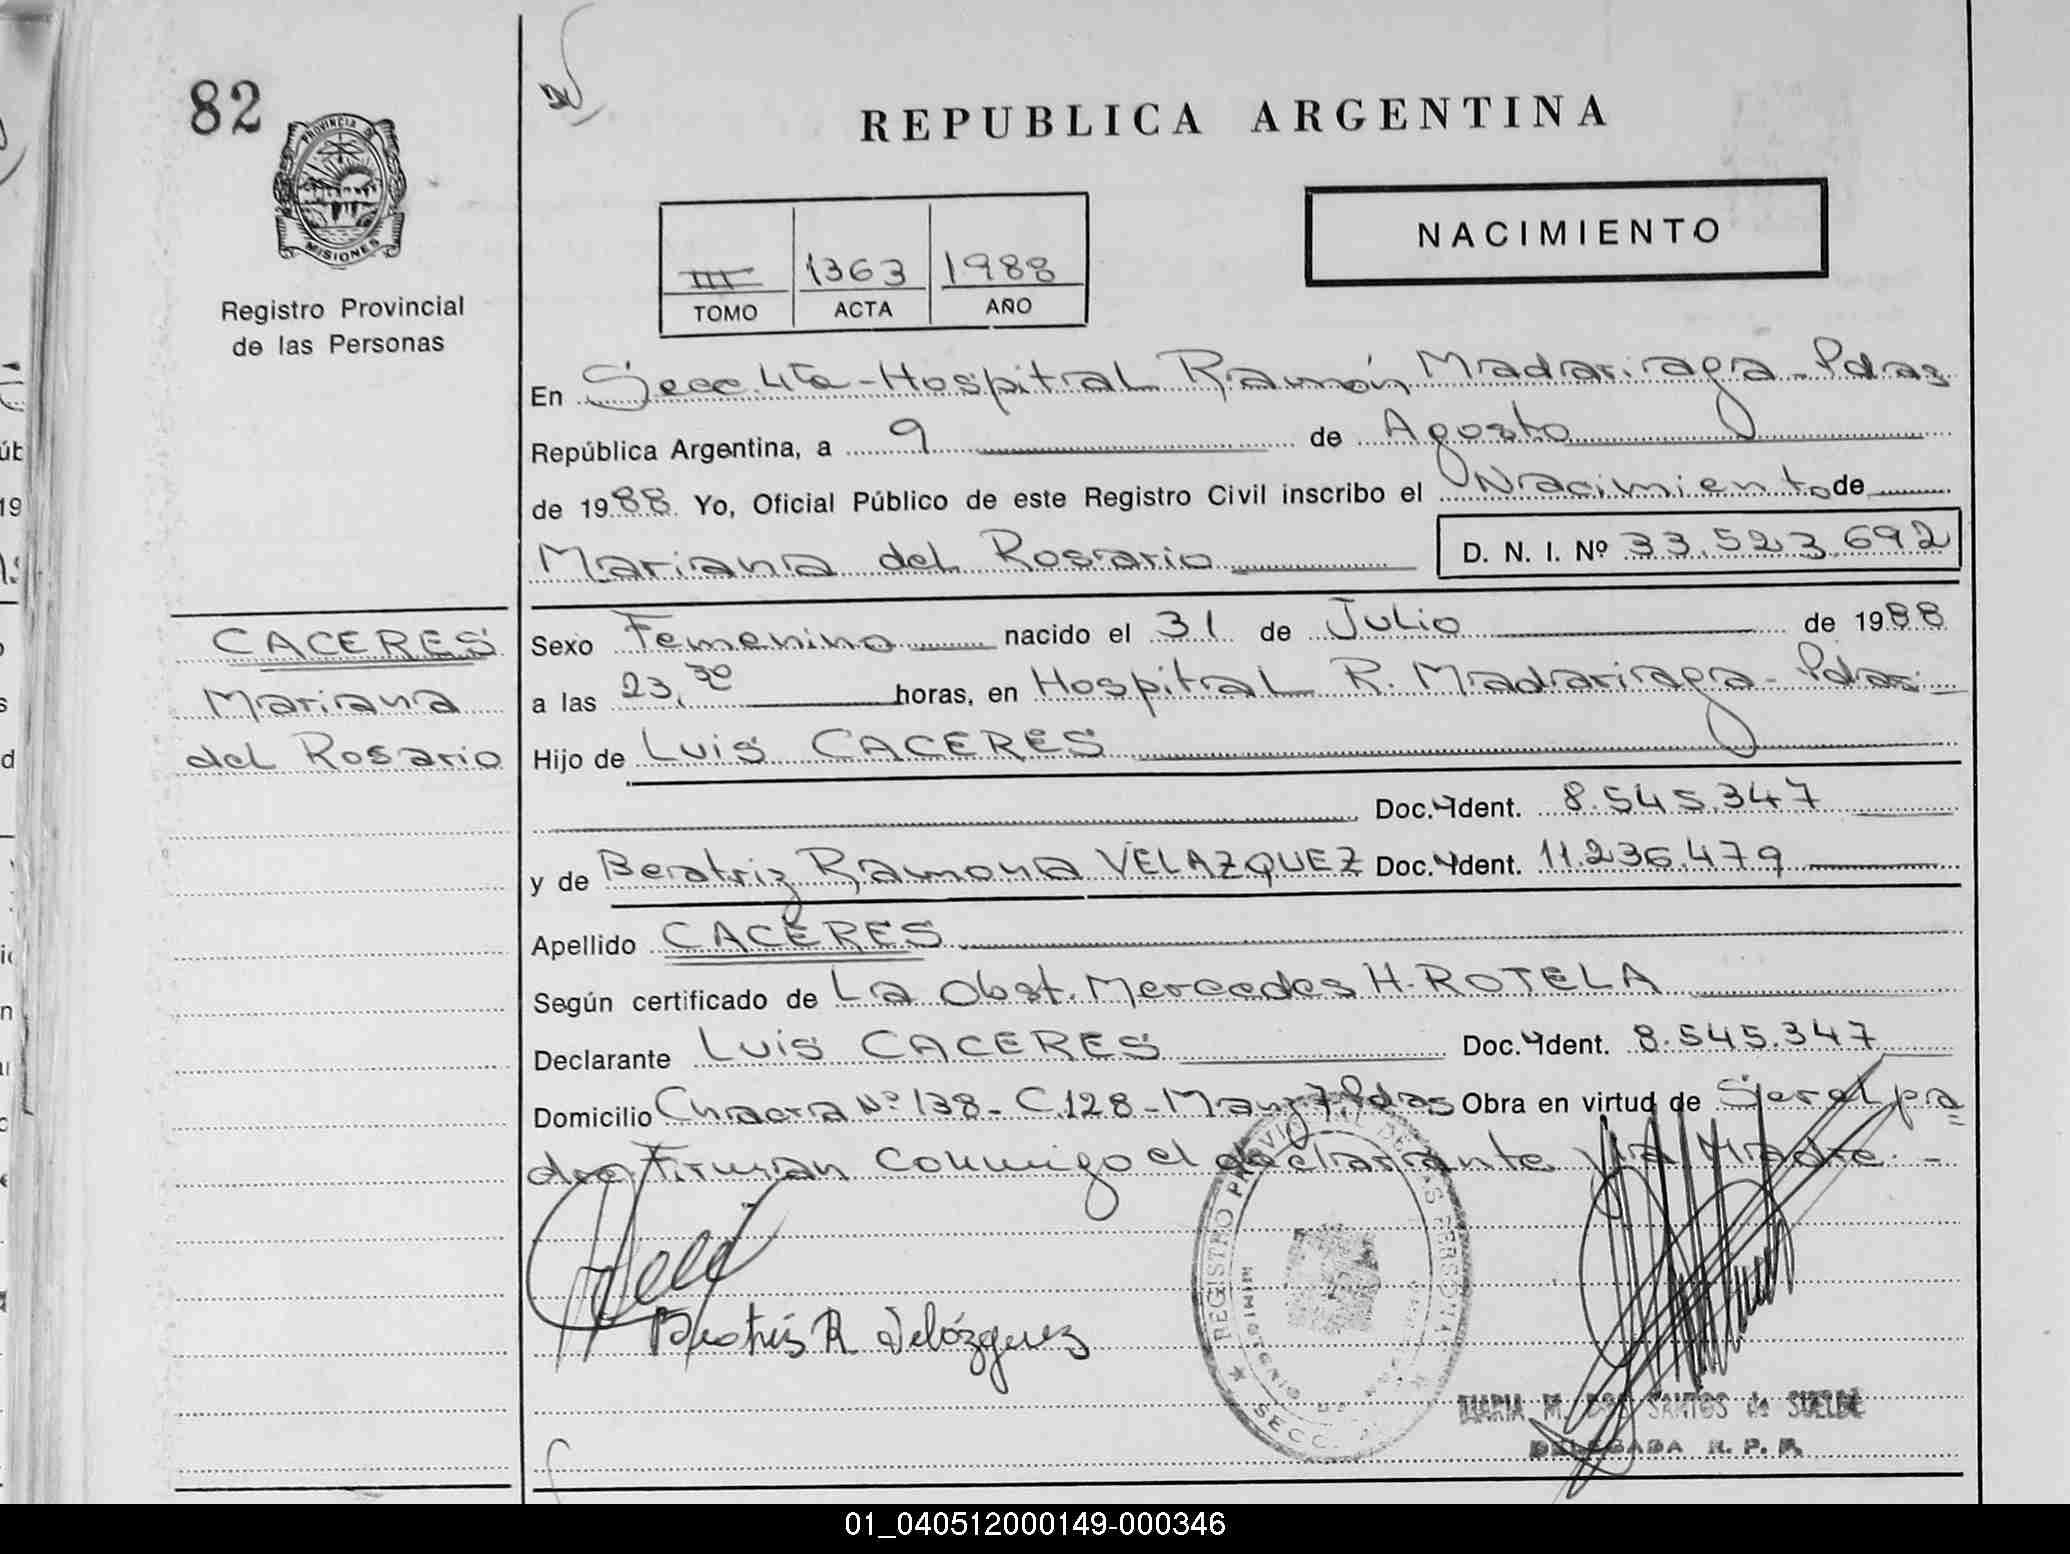 82
PROVINCIA DE
MISIONES
Registro Provincial
de las Personas
REPUBLICA ARGENTINA
NACIMIENTO
III 1363 1988
TOMO ACTA AÑO
En Secc 4ta - Hospital Ramón Madariaga - Pdas
República Argentina, a 9 de Agosto
de 1988 Yo, Oficial Público de este Registro Civil inscribo el Nacimiento de
Mariana del Rosario D. N. I. Nº 33.523.692
CACERES
Mariana
del Rosario
Sexo Femenino nacido el 31 de Julio de 1988
a las 23,30 horas, en Hospital R. Madariaga - Pdas -
Hijo de Luis CACERES
Doc. Ident. 8.545.347
y de Beatriz Ramona VELAZQUEZ Doc. Ident. 11.236.479
Apellido CACERES
Según certificado de La Obst. Mercedes H. ROTELA
Declarante Luis CACERES Doc. Ident. 8.545.347
Domicilio Chacra Nº 138 - C.128 - Manz 7. Pdas Obra en virtud de Ser el pa=
dre, Firman conmigo el declarante y la Madre. -
Beatris R Velázquez
REGISTRO PROVINCIAL DE LAS PERSONAS
SECC.
MARIA M. DOS SANTOS de
DELEGADA R. P. P.
01_040512000149-000346